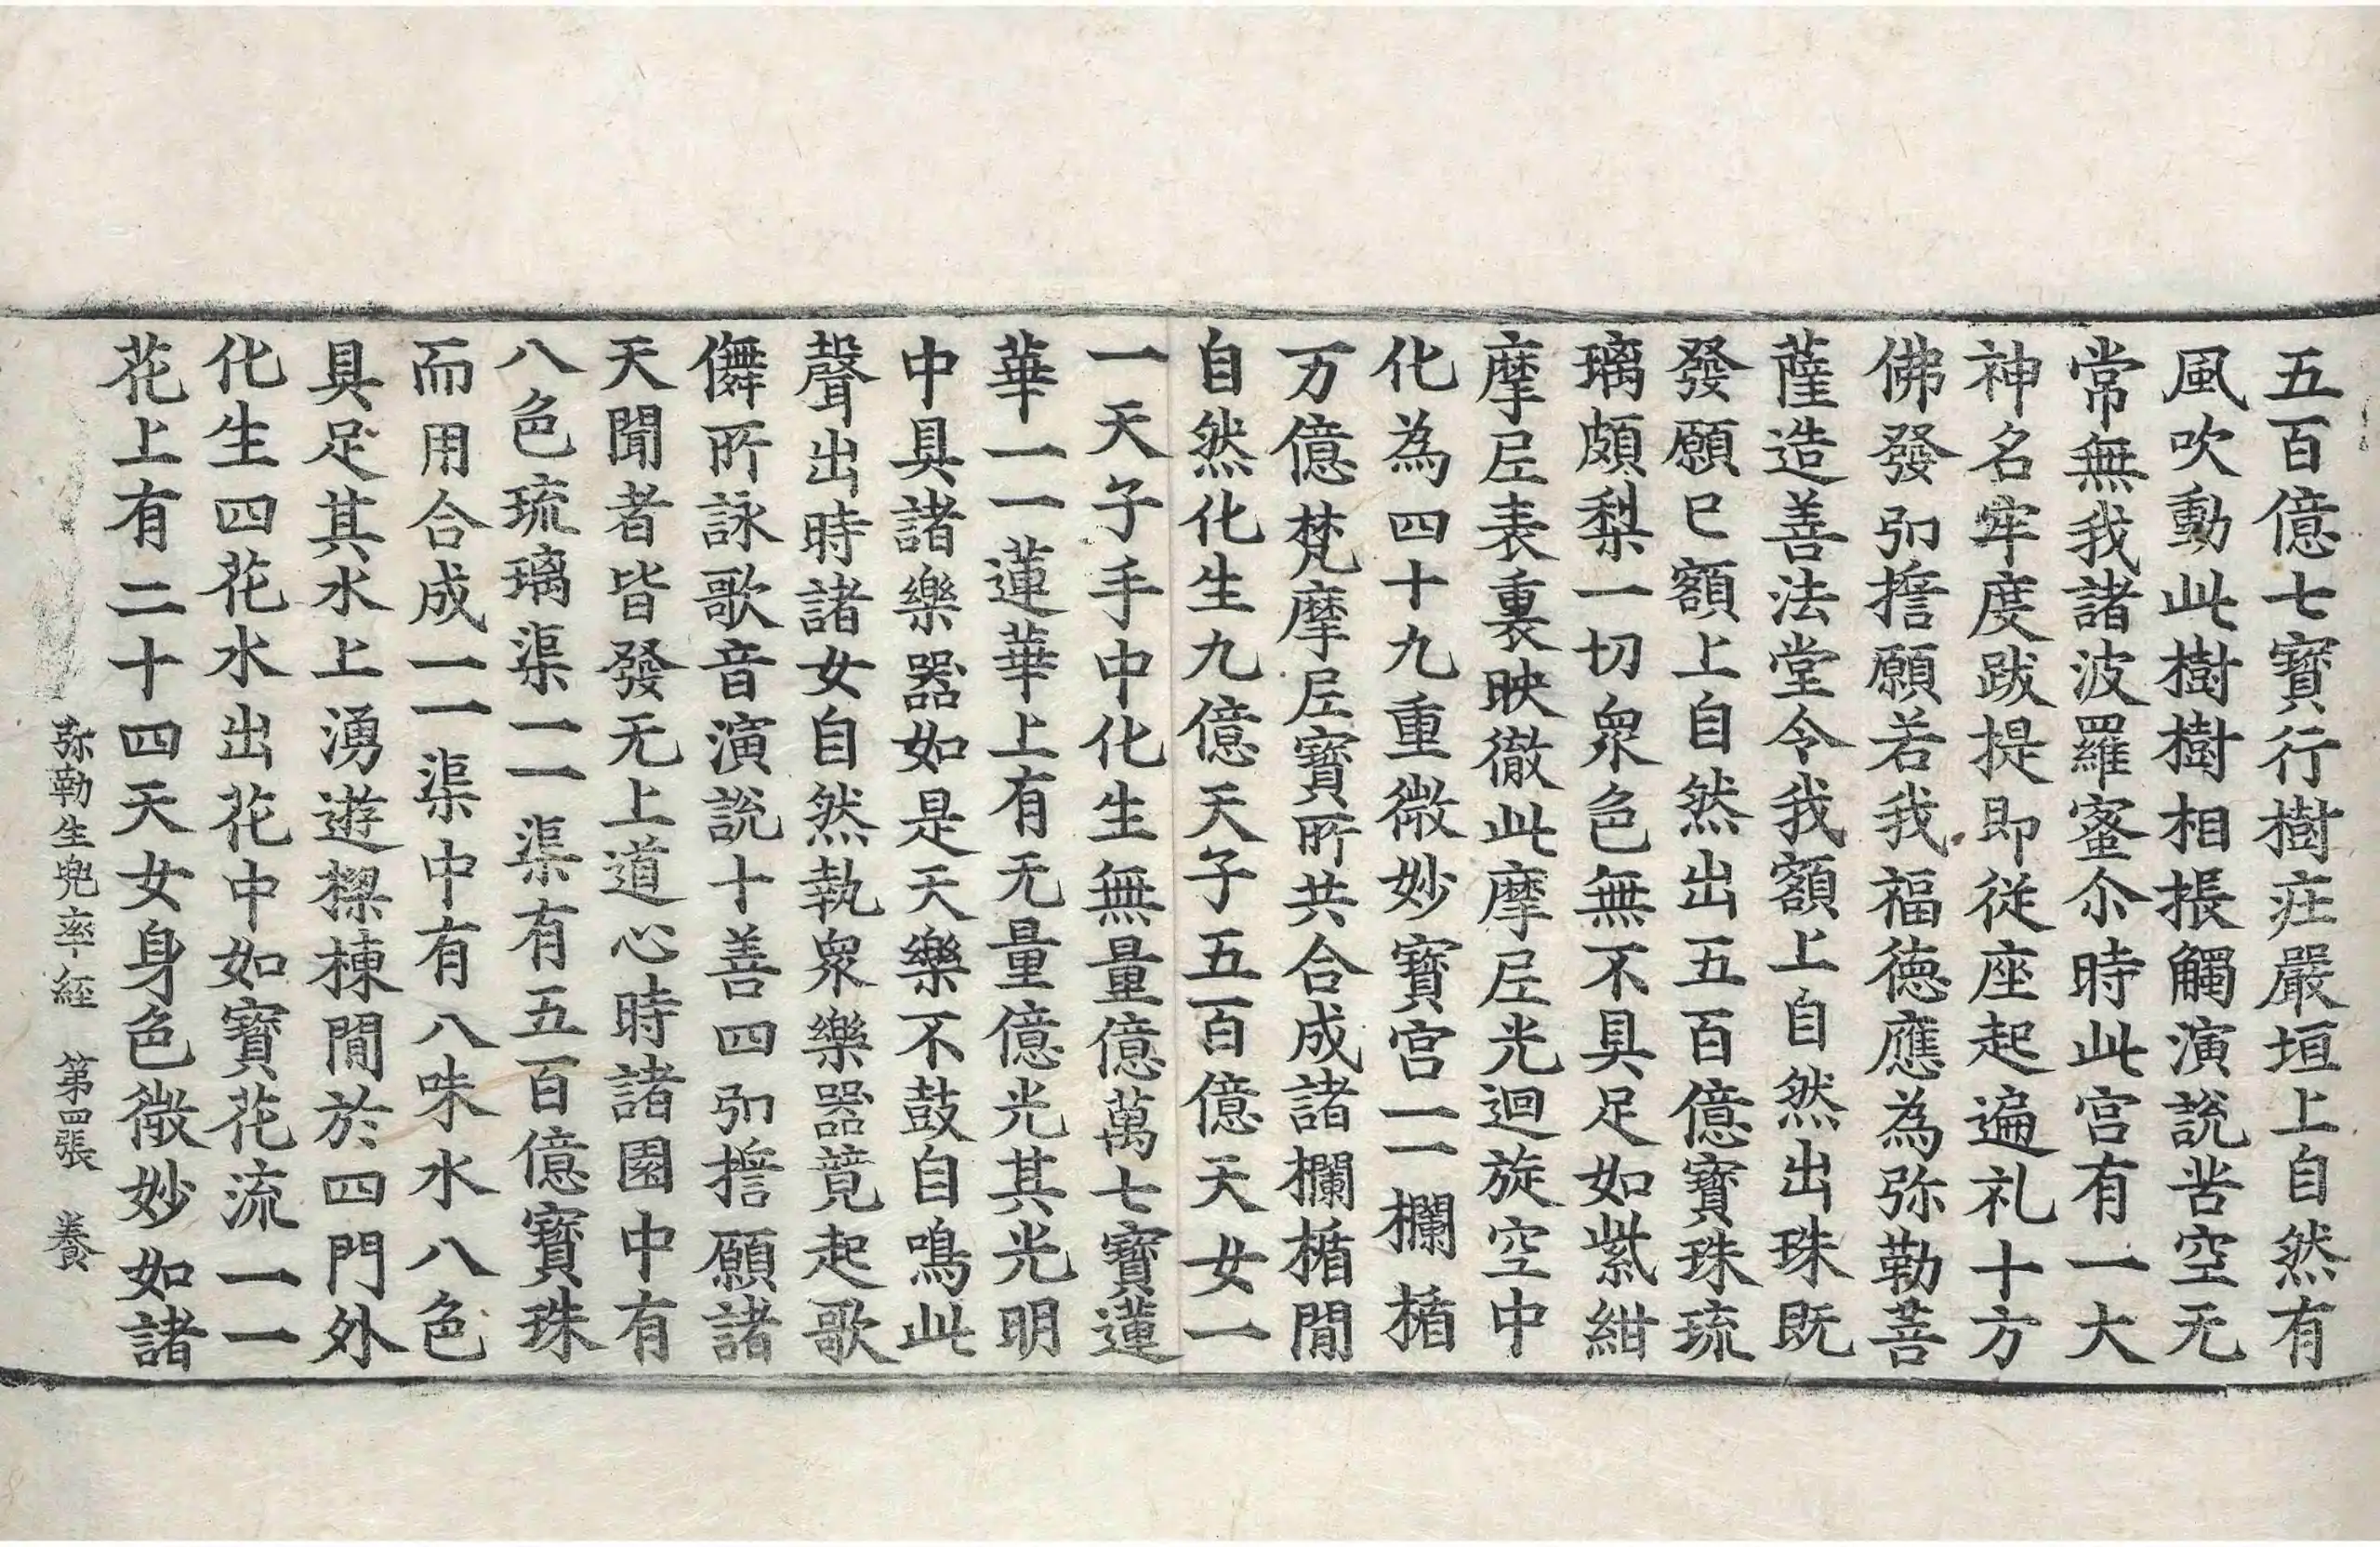 五百億七寶行樹疘嚴垣上自然有
風吹動此樹樹相掁觸演說苦空无
常無我諸波羅蜜尒時此宫有一大
神名牢度跋提即從座起遍礼十方
佛發弘擔願若我福德應為弥勒菩
薩造善法堂令我額上自然出珠既
發願已額上自然出五百億寶珠琉
璃頗梨一切衆色無不具足如紫紺
摩𡰱表裏映徹此摩𡰱光迴旋空中
化為四十九重微妙寶宫一一欄楯
万億梵摩𡰱寶所共合成諸欄楯間
自然化生九億天子五百億天女一
一天子手中化生無量億萬七寶蓮
華一一蓮華上有无量億光其光明
中具諸樂器如是天樂不鼓自鳴此
聲出時諸女自然執衆樂器競起歌
儛所詠歌音演說十善四弘擔願諸
天聞者皆發无上道心時諸園中有
八色琉璃渠一一渠有五百億寶珠
而用合成一一渠中有八味水八色
具足其水上湧遊樑棟間於四門外
化生四花水出花中如寶花流一一
花上有二十四天女身色微妙如諸
弥勒生兜率經　第四張　養